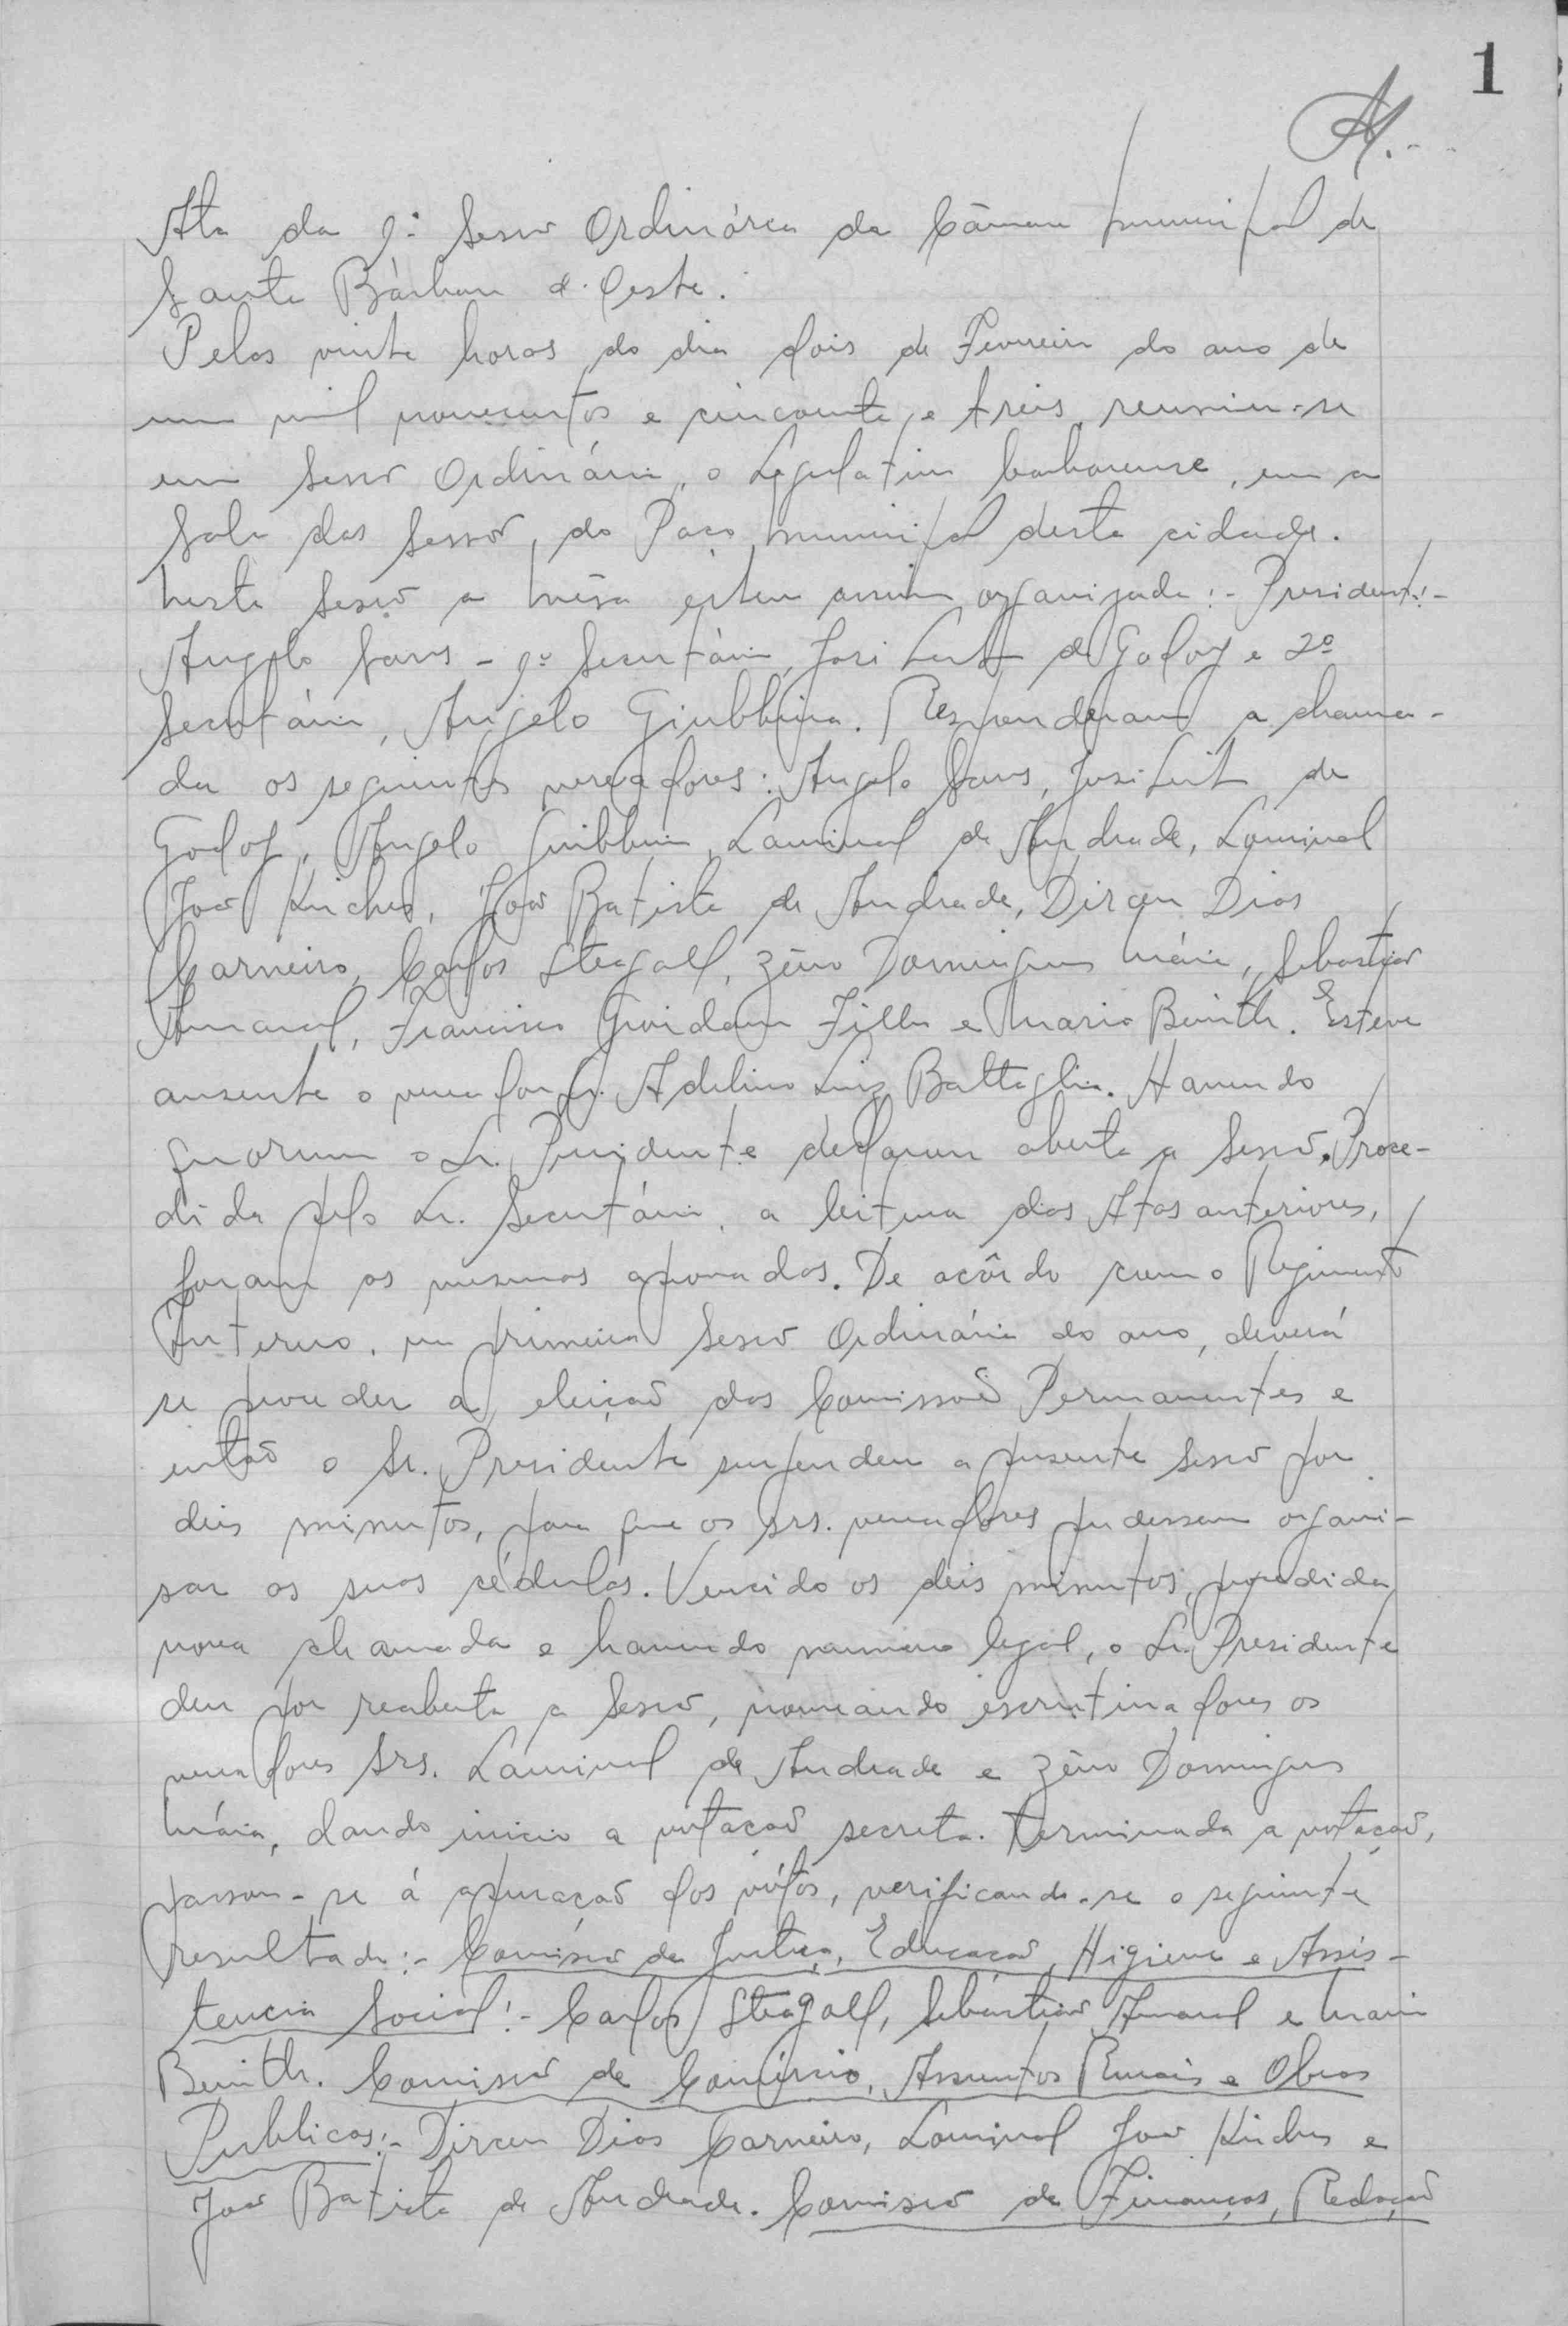 1
A.
Ata da 1ª Sessão Ordinárea da Câmara Municipal de
Santa Bárbara d'Oeste.
Pelas vinte horas do dia dois de Fevereiro do ano de
um mil novecentos e cincoenta e treis, reuniu-se
em Sessão Ordinária, o Legislativo barbarense, em a
Sala das Sessões, do Paço Municipal desta cidade.
Nesta Sessão a Mêsa esteve assim organizada:- Presidente:-
Angelo Sans - 1º Secretário, José Leite de Godoy e 2º
Secretário, Angelo Giubbina. Responderam a chama-
da os seguintes vereadores: Angelo Sans, José Leite de
Godoy, Angelo Giubbina, Laurival de Andrade, Lourival
João Kirches, João Batista de Andrade, Dirceu Dias
Carneiro, Carlos Steagall, Zêno Domingues Maia, Sebastião
Amaral, Francisco Giordano Filho e Mario Beinth. Esteve
ausente o vereador Sr. Adelino Luiz Battaglia. Havendo
quorum o Sr. Presidente declarou aberta a Sessão. Proce-
dida pelo Sr. Secretário, a leitura das Atas anteriores,
foram as mesmas aprovadas. De acôrdo com o Regimento
Interno, na primeira Sessão Ordinária do ano, deverá
se proceder a eleição das Comissões Permanentes e
então o Sr. Presidente suspendeu a presente Sessão por
deis minutos, para que os Srs. vereadores pudessem organi-
sar as suas cédulas. Vencido os deis minutos, procedida
nova chamada e havendo numero legal, o Sr. Presidente
deu por reaberta a Sessão, nomeando escrutinadores os
vereadores Srs. Laurival de Andrade e Zêno Domingues
Maia, dando inicio a votação secreta. Terminada a votação,
passou-se á apuração dos vótos, verificando-se o seguinte
resultado:- Comissão de Justiça, Educação, Higiene e Assis-
tencia Social:- Carlos Steagall, Sebastião Amaral e Mario
Beinth. Comissão de Comércio, Assuntos Rurais e Obras
Publicas:- Dirceu Dias Carneiro, Lourival João Kirches e
João Batista de Andrade. Comissão de Finanças, Redação